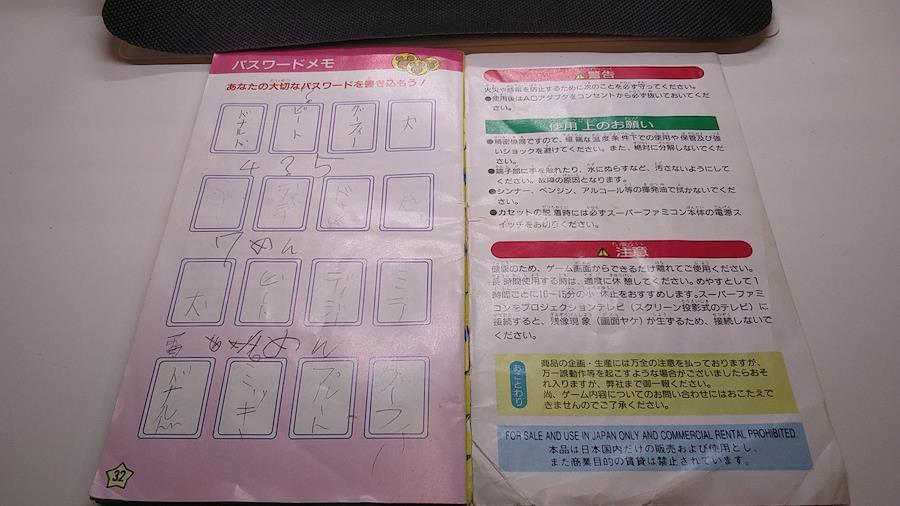 パスワードメモ
あなたの大切なパスワードを書き込もう!
ドナルド
ピート
グーフィ
犬
435
犬
ピート
デージー
ミニー
めん
ドナルド
ミッキー
プルート
グーフィー
32
警告
火災や感電を防止するために次のことを必ず守ってください。
●使用後はACアダプタをコンセントから必ず抜いておいてくだ
さい。
使用上のお願い
●精密機器ですので、極端な温度条件下での使用や保管及び強
いショックを避けてください。また、絶対に分解しないでくだ
さい。
●端子部に手を触れたり、水にぬらすなど、汚さないようにして
ください。故障の原因となります。
●シンナー、ベンジン、アルコール等の揮発油で拭かないでくだ
さい。
●カセットの脱着時には必ずスーパーファミコン本体の電源ス
イッチをお切りください。
注意
健康のため、ゲーム画面からできるだけ離れてご使用ください。
長時間使用する時は、適度に休憩してください。めやすとして1
時間ごとに10〜15分の小休止をおすすめします。スーパーファミ
コンをプロジェクションテレビ(スクリーン投影式のテレビ)に
接続すると、残像現象(画面ヤケ)が生ずるため、接続しないで
ください。
おことわり
商品の企画・生産には万全の注意を払っておりますが、
万一誤動作等を起こすような場合がございましたらおそ
れ入りますが、弊社まで御一報ください。
尚、ゲーム内容についてのお問い合わせにはおこたえで
きませんのでご了承ください。
FOR SALE AND USE IN JAPAN ONLY AND COMMERCIAL RENTAL PROHIBITED.
本品は日本国内だけの販売および使用とし、
また商業目的の賃貸は禁止されています。